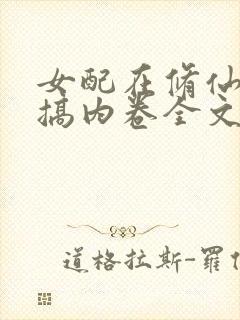 女配在脩仙
搞内卷全文
道格拉斯-羅